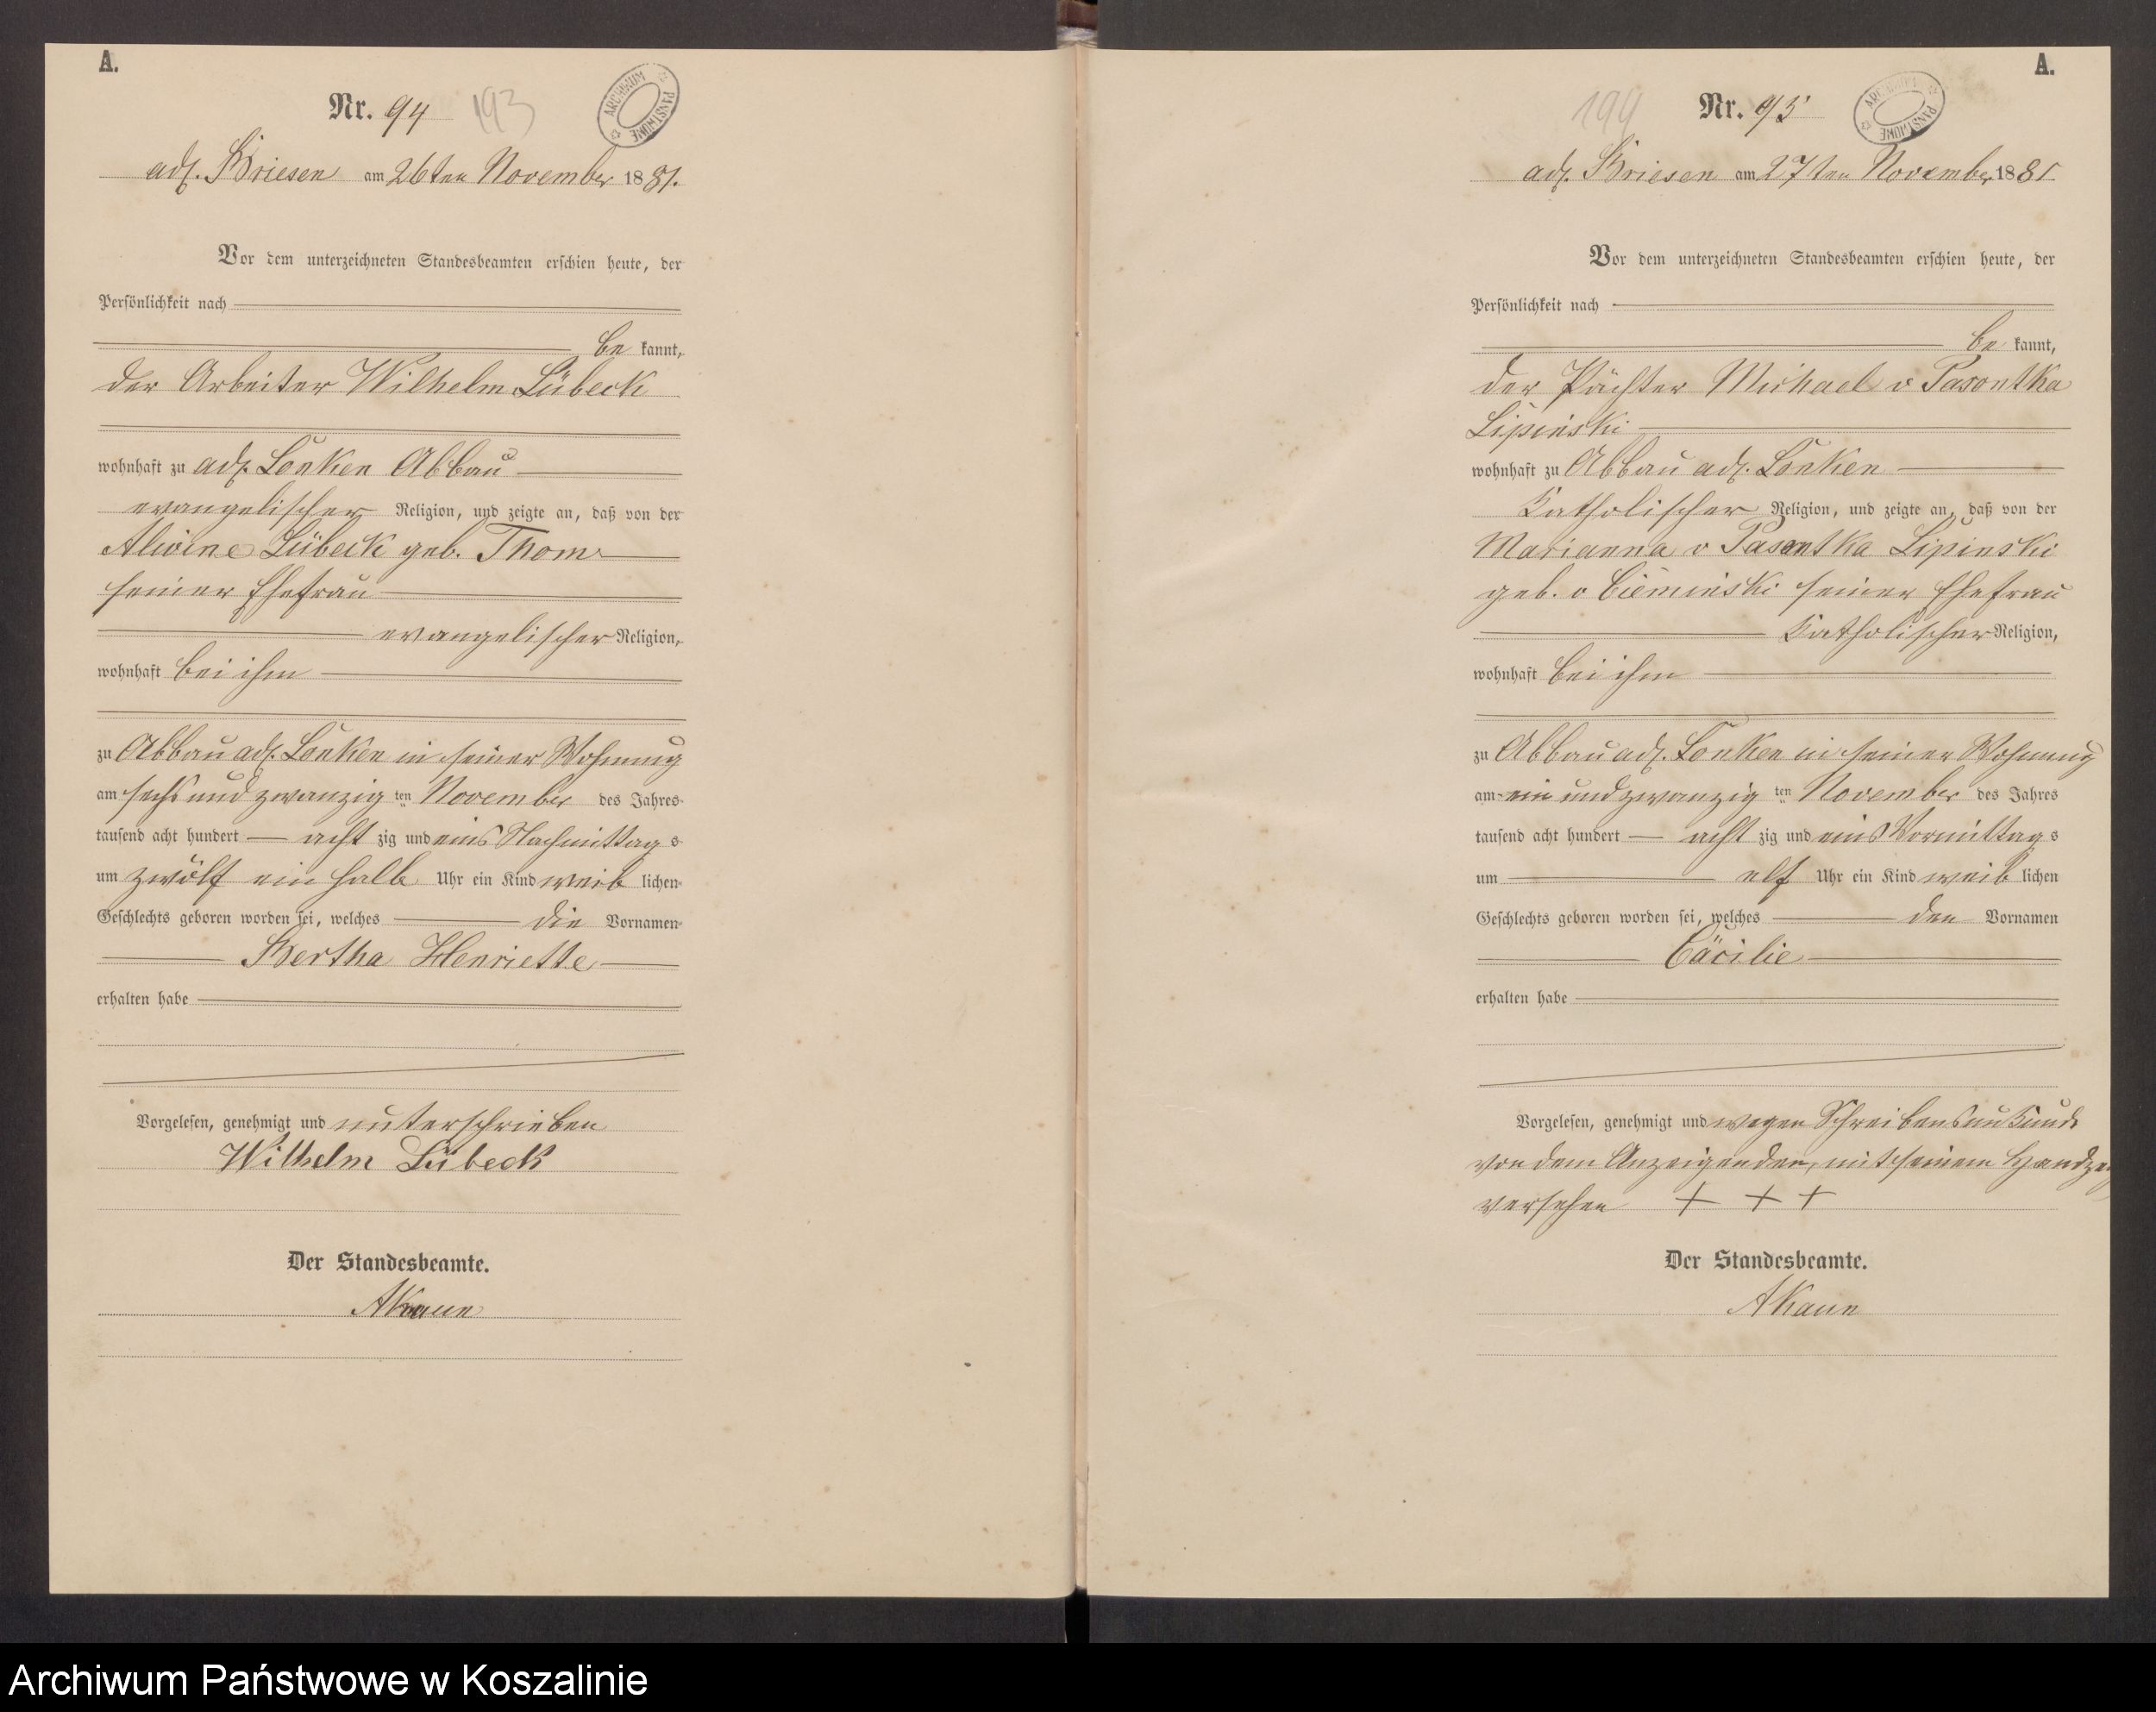 A.
Nr. 94 193
ARCHIWUM PAŃSTWOWE
adl. Briesen am 26ten November 1881.
Vor dem unterzeichneten Standesbeamten erschien heute, der
Persönlichkeit nach
be kannt,
der Arbeiter Wilhelm Lübeck
wohnhaft zu adl. Lonken Abbau
evangelischer Religion, und zeigte an, daß von der
Alwine Lübeck geb. Thom
seiner Ehefrau
evangelischer Religion,
wohnhaft bei ihm
zu Abbau adl. Lonken in seiner Wohnung
am sechs und zwanzig ten November des Jahres
tausend acht hundert acht zig und eins Nachmittag s
um zwölf ein halb Uhr ein Kind weib lichen
Geschlechts geboren worden sei, welches die Vornamen
Bertha Henriette
erhalten habe
Vorgelesen, genehmigt und unterschrieben
Wilhelm Lübeck
Der Standesbeamte.
AKaun
A.
194 Nr. 95
ARCHIWUM PAŃSTWOWE
adl. Briesen am 27ten November 1881
Vor dem unterzeichneten Standesbeamten erschien heute, der
Persönlichkeit nach
be kannt,
der Pächter Michael v Pasontka
Lipinski
wohnhaft zu Abbau adl. Lonken
Katholischer Religion, und zeigte an, daß von der
Marianna v Pasontka Lipinski
geb. v Cieminski seiner Ehefrau
Katholischer Religion,
wohnhaft bei ihm
zu Abbau adl. Lonken in seiner Wohnung
am ein und zwanzig ten November des Jahres
tausend acht hundert acht zig und eins Vormittag s
um elf Uhr ein Kind weib lichen
Geschlechts geboren worden sei, welches den Vornamen
Cäcilie
erhalten habe
Vorgelesen, genehmigt und wegen Schreibensunkunde
von dem Anzeigenden, mit seinem
versehen + + +
Der Standesbeamte.
AKaun
Archiwum Państwowe w Koszalinie